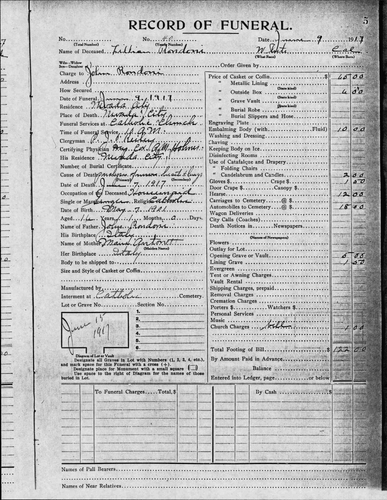 5
RECORD OF FUNERAL.
No. No. Date, June 9, 1917
(Total Number) (Yearly Number)
Name of Deceased Lillian Rondoni White Cal.
(What Race) (Where Born)
Charge to John Rondoni
Order Given by
Address
How Secured
Date of Funeral June 9, 1917
Residence Nevada City
Place of Death, Nevada City
Funeral Services at Catholic Church
Time of Funeral Service, A.M.
Clergyman,
Certifying Physician,
His Residence Nevada City
Number of Burial Certificate
Cause of Death
Date of Death June 7, 1917
Occupation of Deceased
Single or Married Religion Catholic
Date of Birth May 7, 1901
Aged, 16 Years, 1 Months, 0 Days
Name of Father, John Rondoni
His Birthplace Italy
Name of Mother,
Her Birthplace Italy
Body to be shipped to
Size and Style of Casket or Coffin
Manufactured by
Interment at Catholic Cemetery.
Lot or Grave No. Section No.
June 15 1917
1
2
3
4
5
6
7
8
Diagram of Lot or Vault
Designate all Graves in Lot with Numbers (1, 2, 3, 4, etc.),
and mark space for this Funeral with a cross (+).
Designate place for Monument with a small square
Use space to right of Diagram for the names of those
buried in Lot.
Price of Casket or Coffin $ 65 00
" Metallic Lining
" Outside Box
" Grave Vault
" Burial Robe
" Burial Slippers and Hose
Engraving Plate
Embalming Body (with Fluid) 10 00
Washing and Dressing
Shaving
Keeping Body on Ice
Disinfecting Rooms
Use of Catafalque and Drapery
" Folding Chairs
" Candelabrum and Candles 2 00
Gloves $ Crape $
Door Crape $ Canopy $
Hearse 12 00
Carriages to Cemetery @ $
Automobiles to Cemetery @ $ 18 00
Wagon Deliveries
City Calls (Coaches)
Death Notices in Newspapers
(Names of Newspapers)
Flowers
Outlay for Lot
Opening Grave or Vault
Lining Grave
Evergreen
Tent or Awning Charges
Vault Rental
Shipping Charges, prepaid
Removal Charges
Cremation Charges
Porters $ Watchers $
Personal Services
Music
Church Charges 1 00
Total Footing of Bill $ 122 00
By Amount Paid in Advance
Balance $
Entered into Ledger, page or below
To Funeral Charges Total, $
By Cash
Names of Pall Bearers,
Names of Near Relatives,